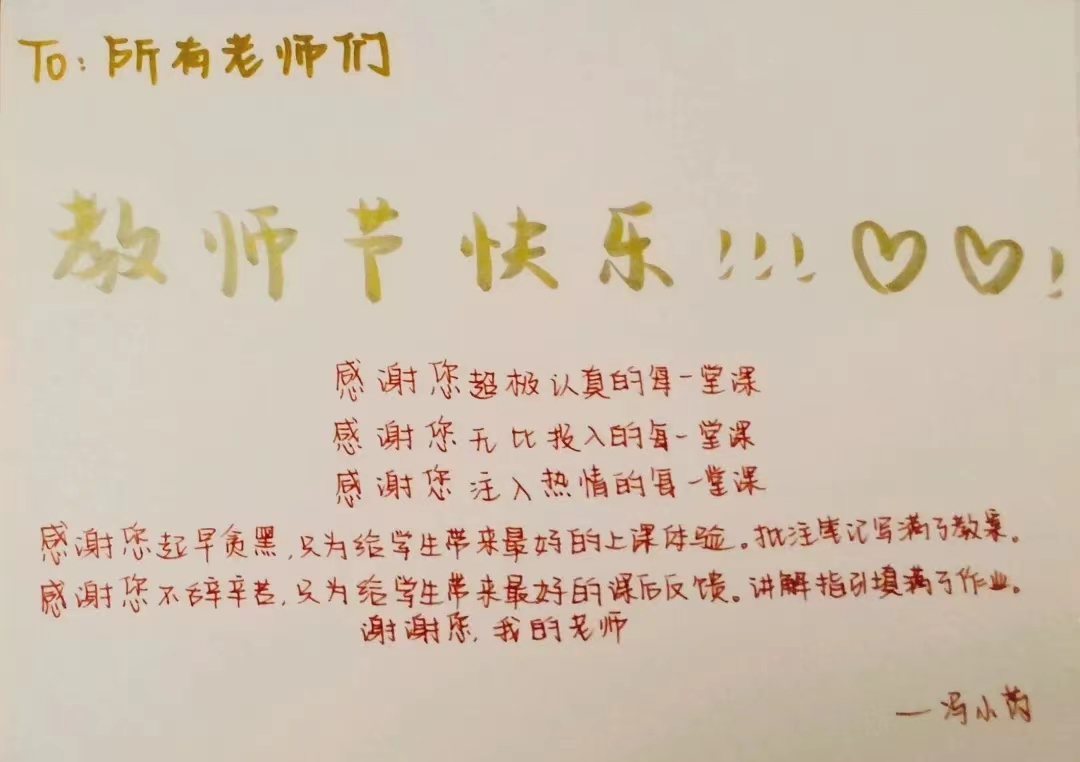 To: 所有老师们
教师节快乐!!!♡♡!
感谢您超极认真的每一堂课
感谢您无比投入的每一堂课
感谢您注入热情的每一堂课
感谢您起早贪黑,只为给学生带来最好的上课体验。批注笔记写满了教案。
感谢您不辞辛苦,只为给学生带来最好的课后反馈。讲解指引填满了作业。
谢谢您,我的老师
—冯小芮